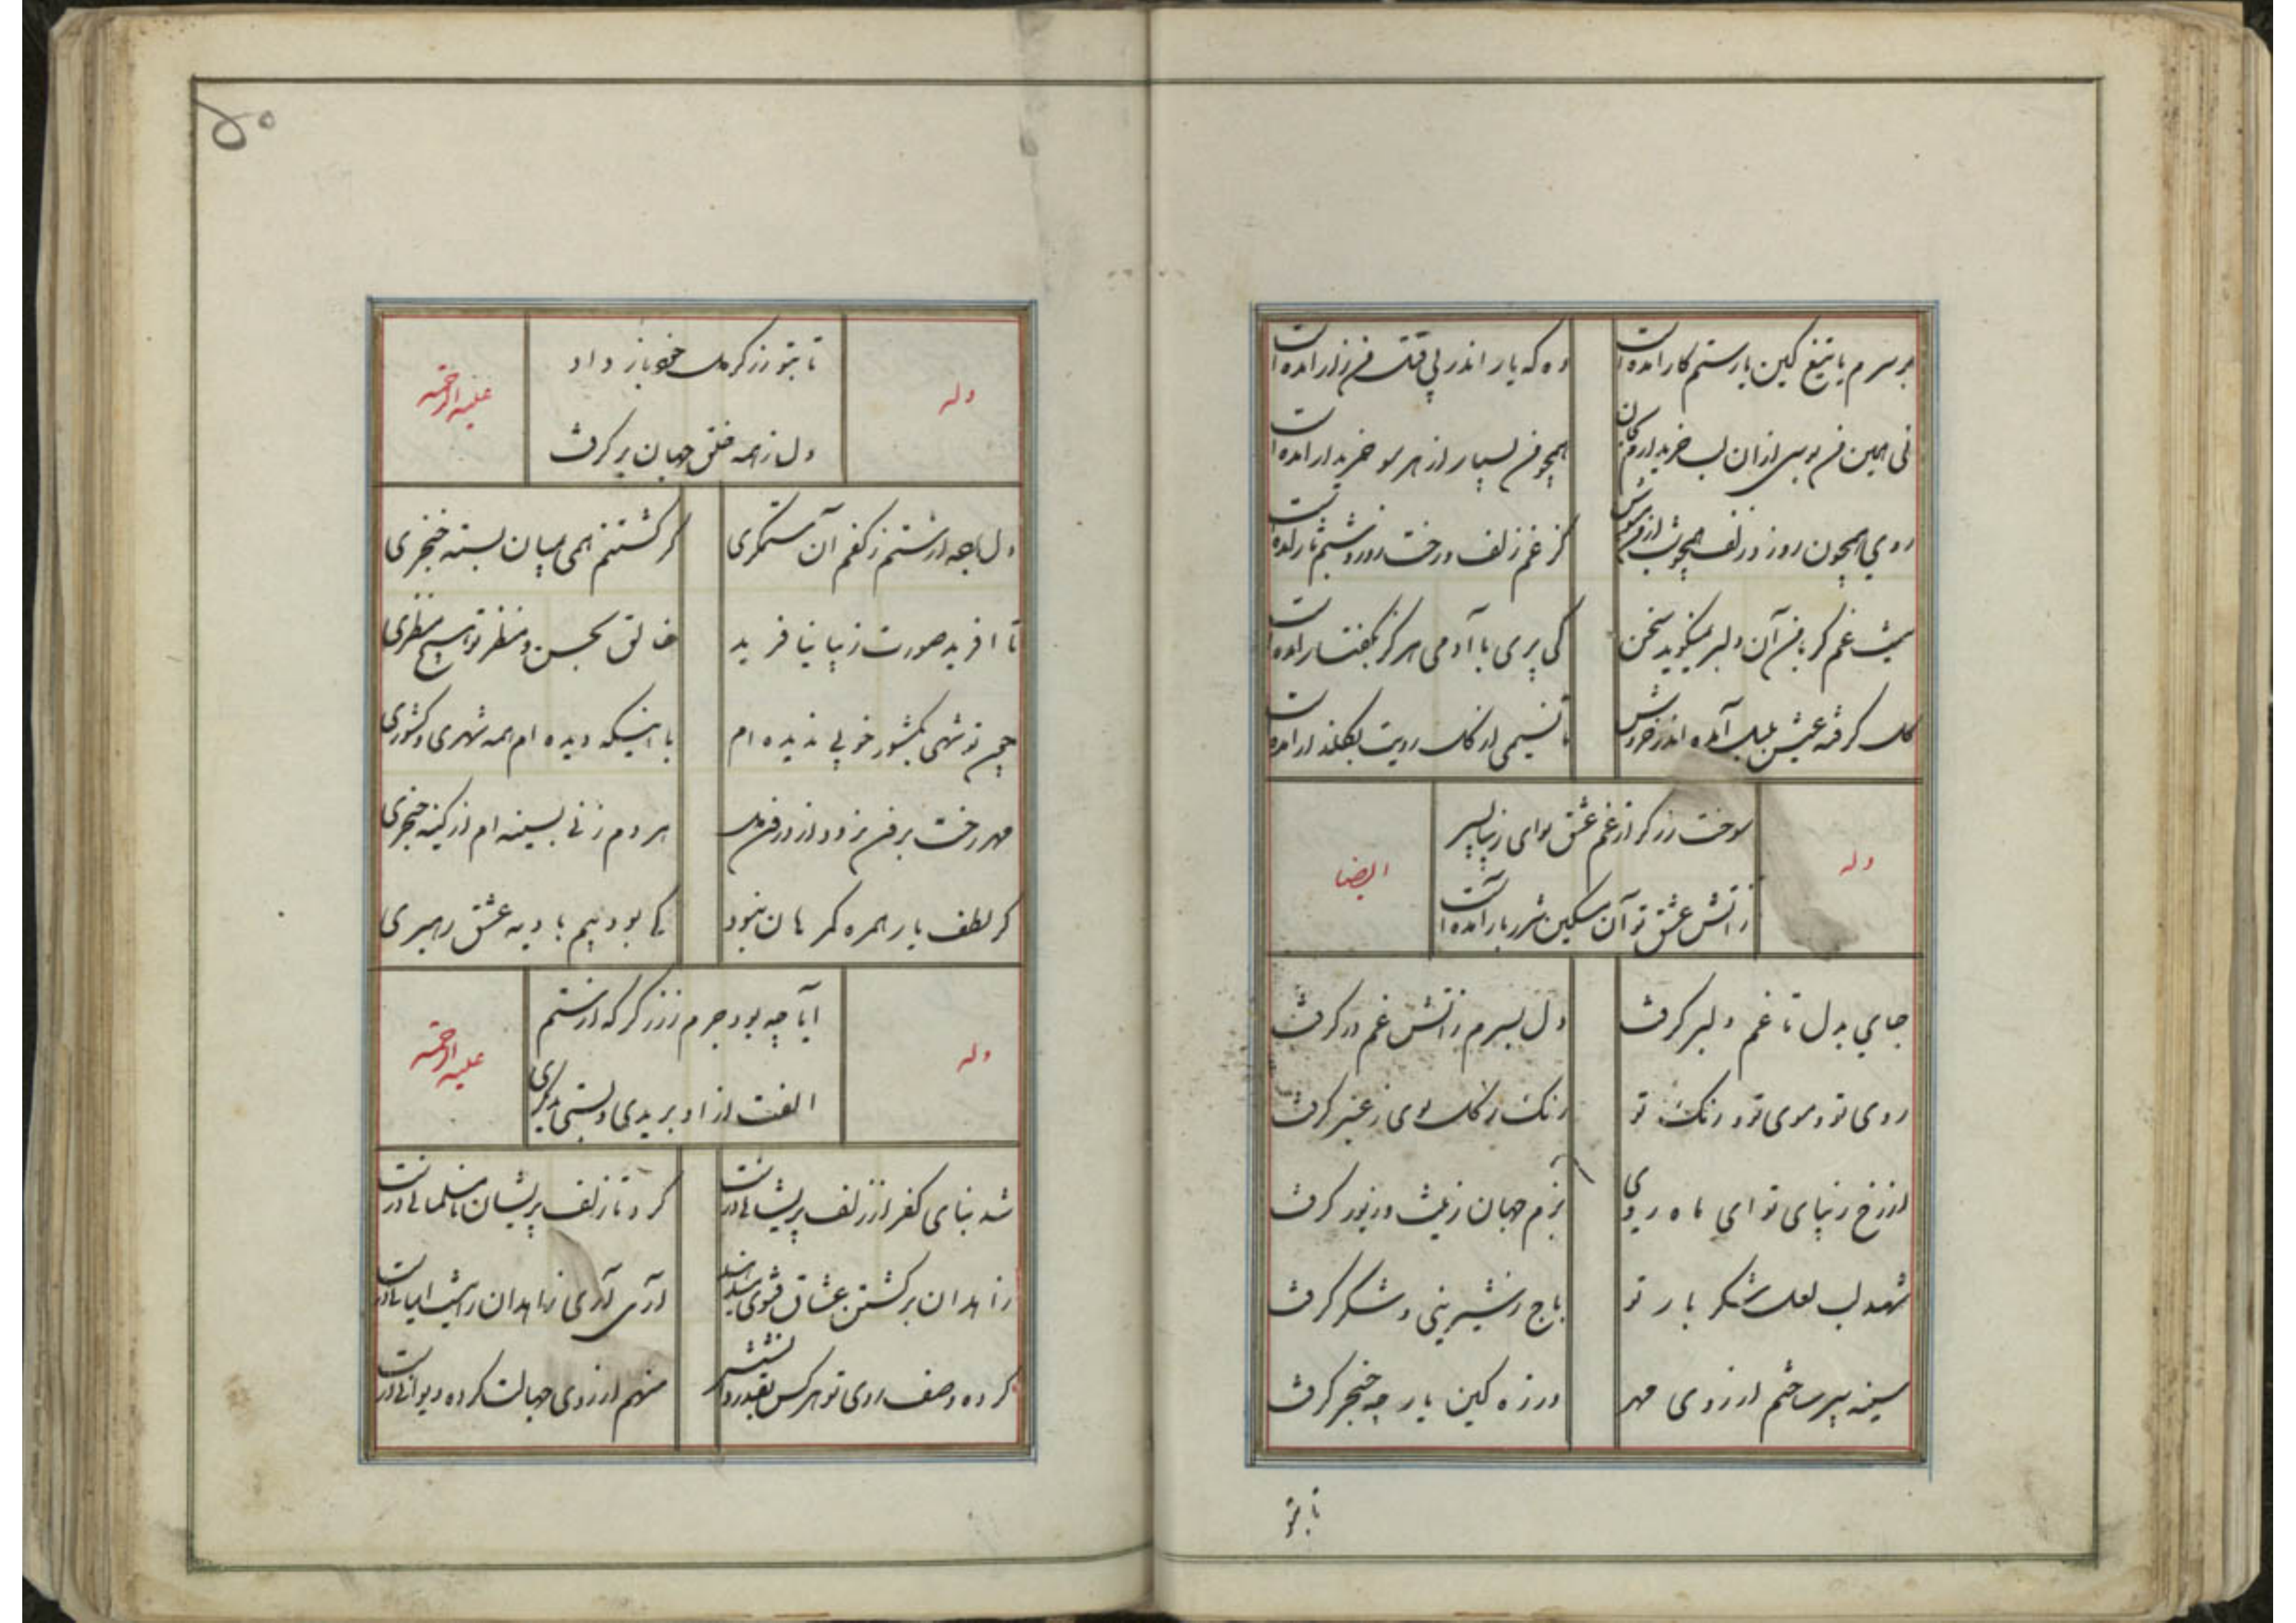 بر سرم با تیغ کین یار ستم کار آمده است
وه که یار اندر پی قتل من زار آمده است
نی همین من بوسی از آن لب خریدارم کان
همچو من بسیار از هر سو خریدار آمده است
روی همچون روز و زلف همچو شب
کز غم زلف و رخت روز و شبم تار آمده
نیست غم گر با من آن دلبر نمیگوید سخن
کی پری با آدمی هرگز بگفتار آمده است
گل گرفته عیش بلبل آمده اندر خروش
تا نسیمی از گل رویت بگلزار آمده است
وله
سوخت زرگر از غم عشق تو ای زیبا پسر
زآتش عشق تو آن مسکین شرربار آمده است
ایضا
جای بدل تا غم دلبر گرفت
دل بسرم زآتش غم در گرفت
روی تو و موی تو و رنگ تو
رنگ ز گل بوی ز عنبر گرفت
از رخ زیبای تو ای ماه روی
بزم جهان زینت و زیور گرفت
شهد لب لعل شکر بار تو
باج ز شیرینی و شکر گرفت
سینه سپر ساختم از روی مهر
ورزه کین یار چه خنجر گرفت
تا بتو
۵۰
وله
تا بتو زرگر دل خود باز داد
دل ز همه خلق جهان بر گرفت
علیه الرحمه
دل باچه از ستم ز کفم آن ستمگری
کز کشتنم همی میان بسته خنجری
تا افرید صورت زیبا نیافرید
خالق بحسن و منظر تو هیچ منظری
چون تو شهی بکشور خوبی ندیده ام
با اینکه دیده ام همه شهری و کشوری
مهر رخت برفن نرود از درون دل
هر دم زنی بسینه ام از کینه خنجری
گر لطف یار همره گمرهان نبود
کی بودیم بادیه عشق رهبری
وله
آیا چه بود جرم ز زرگر که از ستم
الفت از او بریدی و بستی بدیگری
علیه الرحمه
شد بنای کفر از زلف پریشانی درست
کرد تا زلف پریشان نامسلمانی درست
زاهدان بر کشتن عشاق فتوی میدهند
آری آری زاهدان را نیست ایمانی درست
کرده وصف روی تو هر کس بقدر دانشش
منهم از روی جمالت کرده دیوانی درست